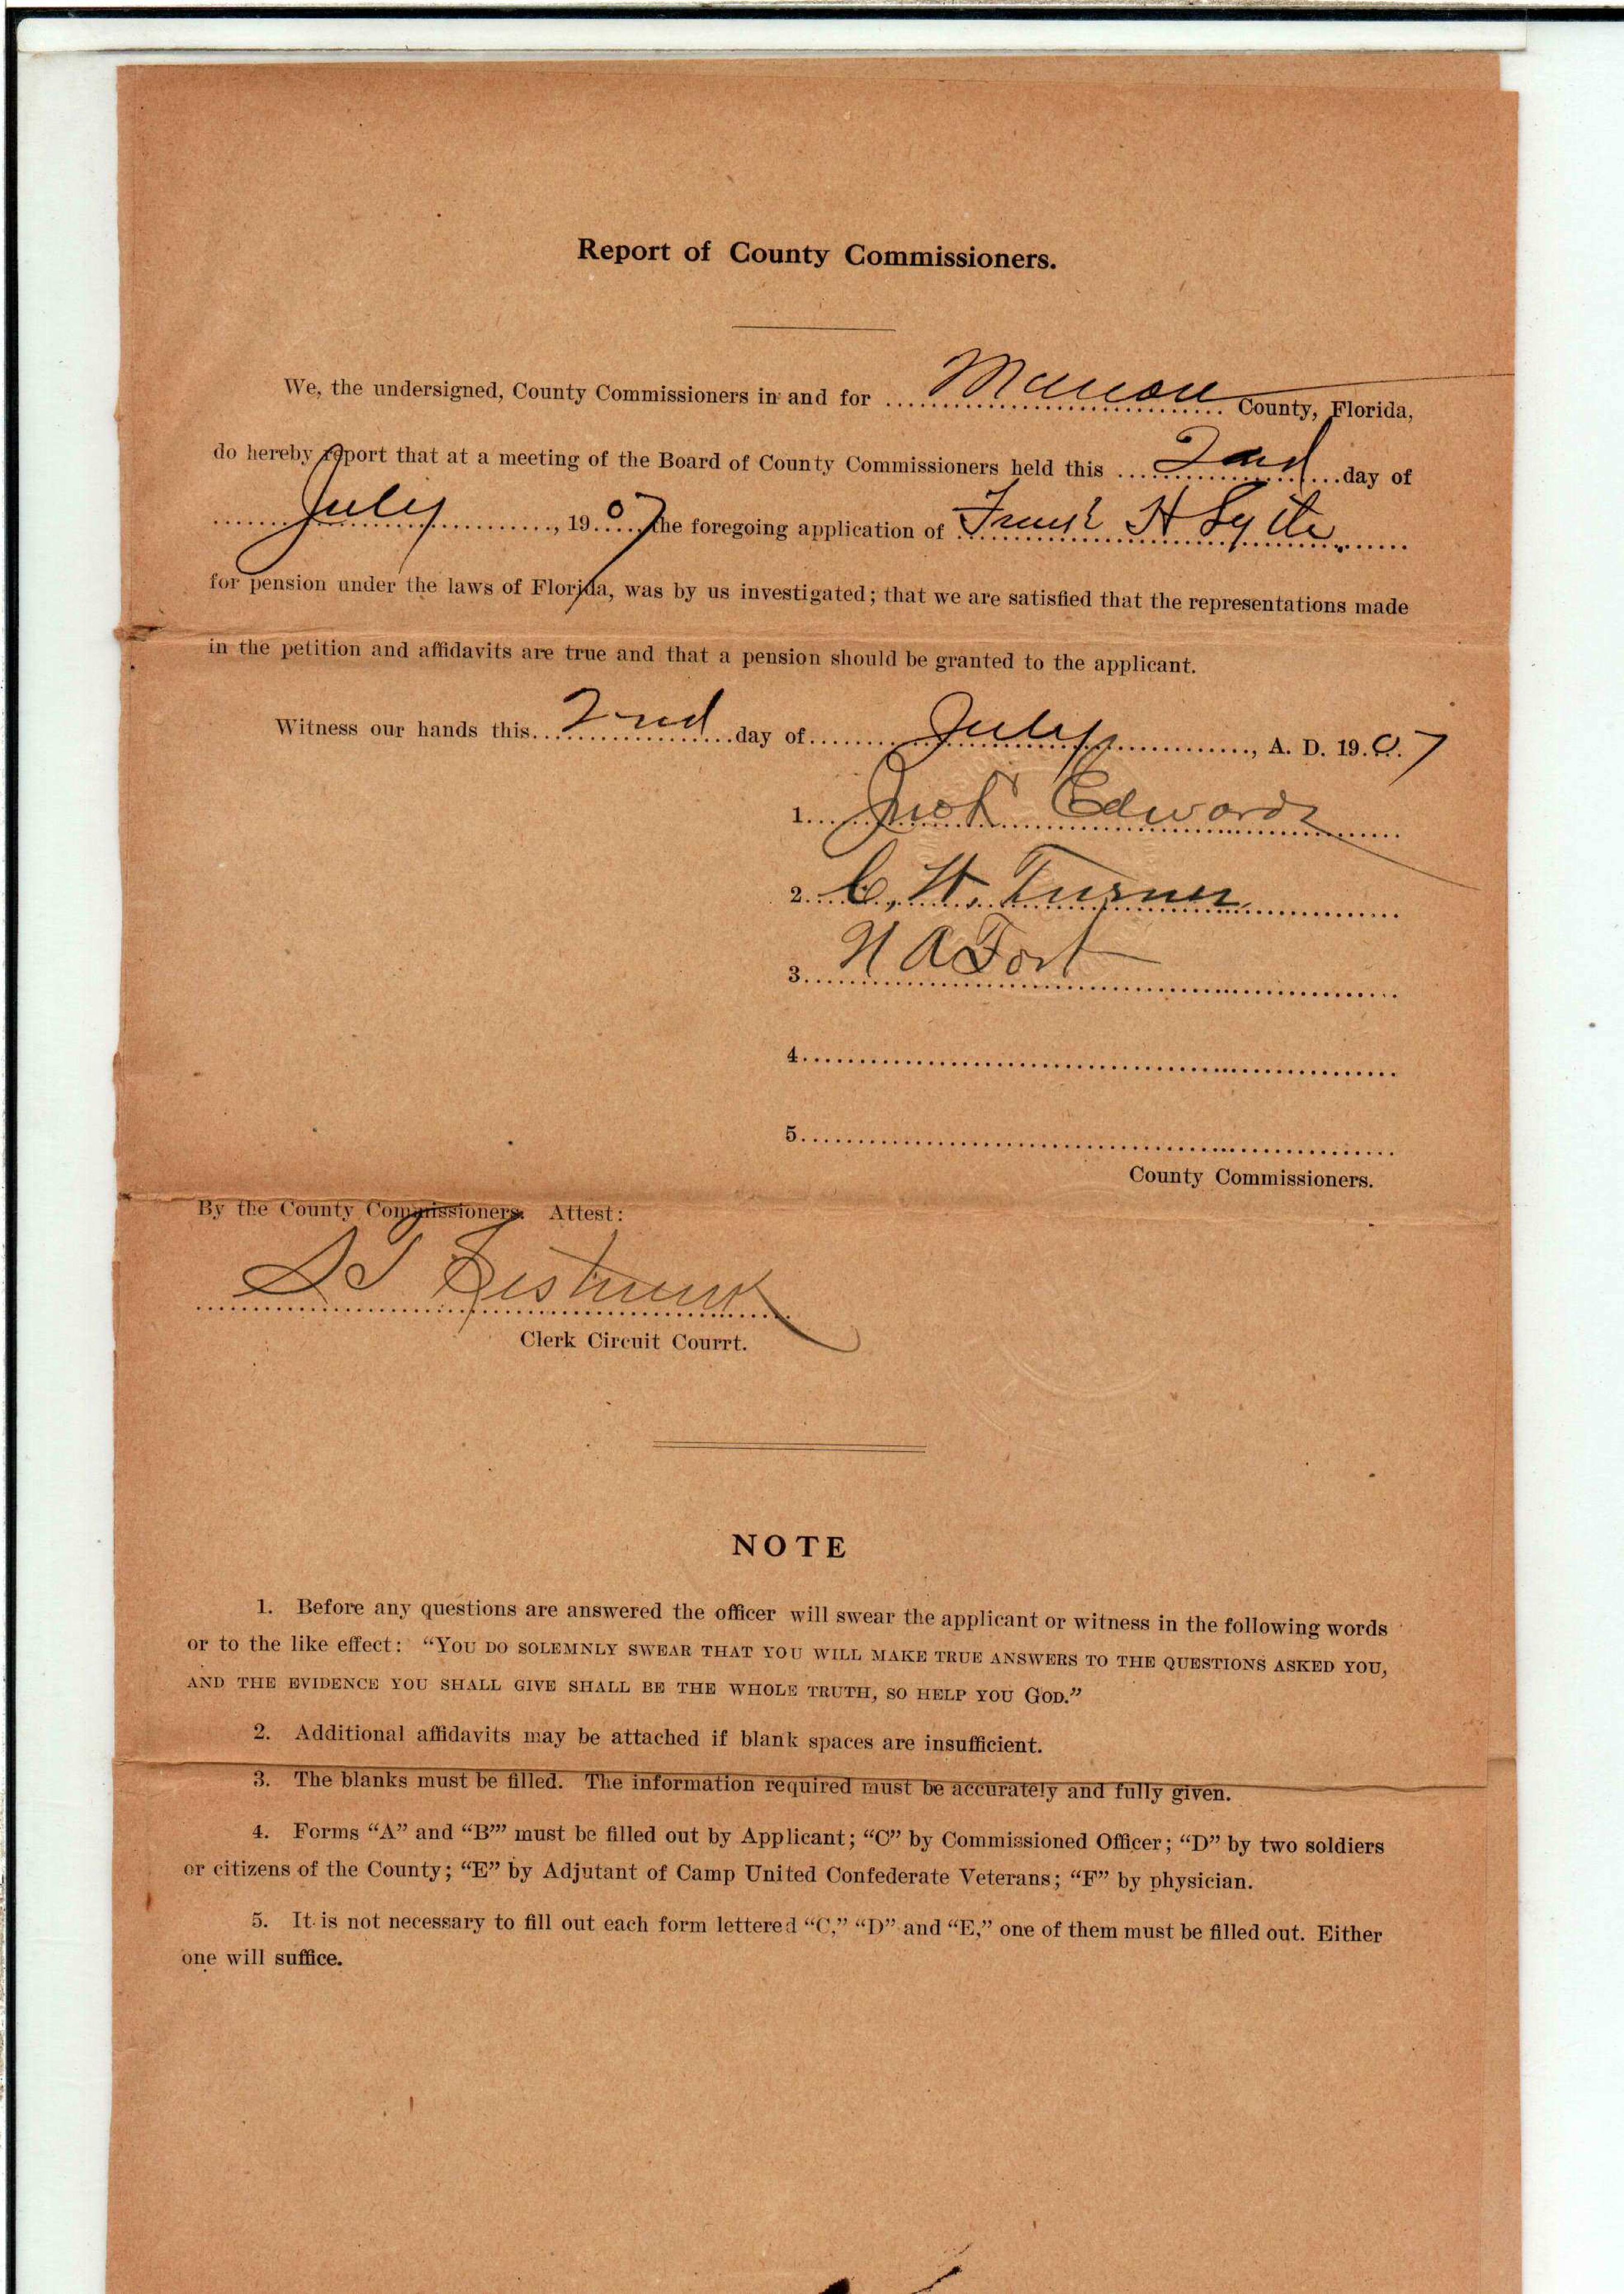 Report of County Commissioners.
We, the undersigned, County Commissioners in and for Marion County, Florida,
do hereby report that at a meeting of the Board of County Commissioners held this 2nd day of
July, 1907 the foregoing application of Frank H
for pension under the laws of Florida, was by us investigated; that we are satisfied that the representations made
in the petition and affidavits are true and that a pension should be granted to the applicant.
Witness our hands this 2nd day of July, A. D. 1907
1. Edwards
2. C. H. Turner
3. N A Fort
4.
5.
County Commissioners.
By the County Commissioners. Attest:
S T Sistrunk
Clerk Circuit Courrt.
NOTE
1. Before any questions are answered the officer will swear the applicant or witness in the following words
or to the like effect: “YOU DO SOLEMNLY SWEAR THAT YOU WILL MAKE TRUE ANSWERS TO THE QUESTIONS ASKED YOU,
AND THE EVIDENCE YOU SHALL GIVE SHALL BE THE WHOLE TRUTH, SO HELP YOU GOD.”
2. Additional affidavits may be attached if blank spaces are insufficient.
3. The blanks must be filled. The information required must be accurately and fully given.
4. Forms “A” and “B”’ must be filled out by Applicant; “C” by Commissioned Officer; “D” by two soldiers
or citizens of the County; “E” by Adjutant of Camp United Confederate Veterans; “F” by physician.
5. It is not necessary to fill out each form lettered “C,” “D” and “E,” one of them must be filled out. Either
one will suffice.